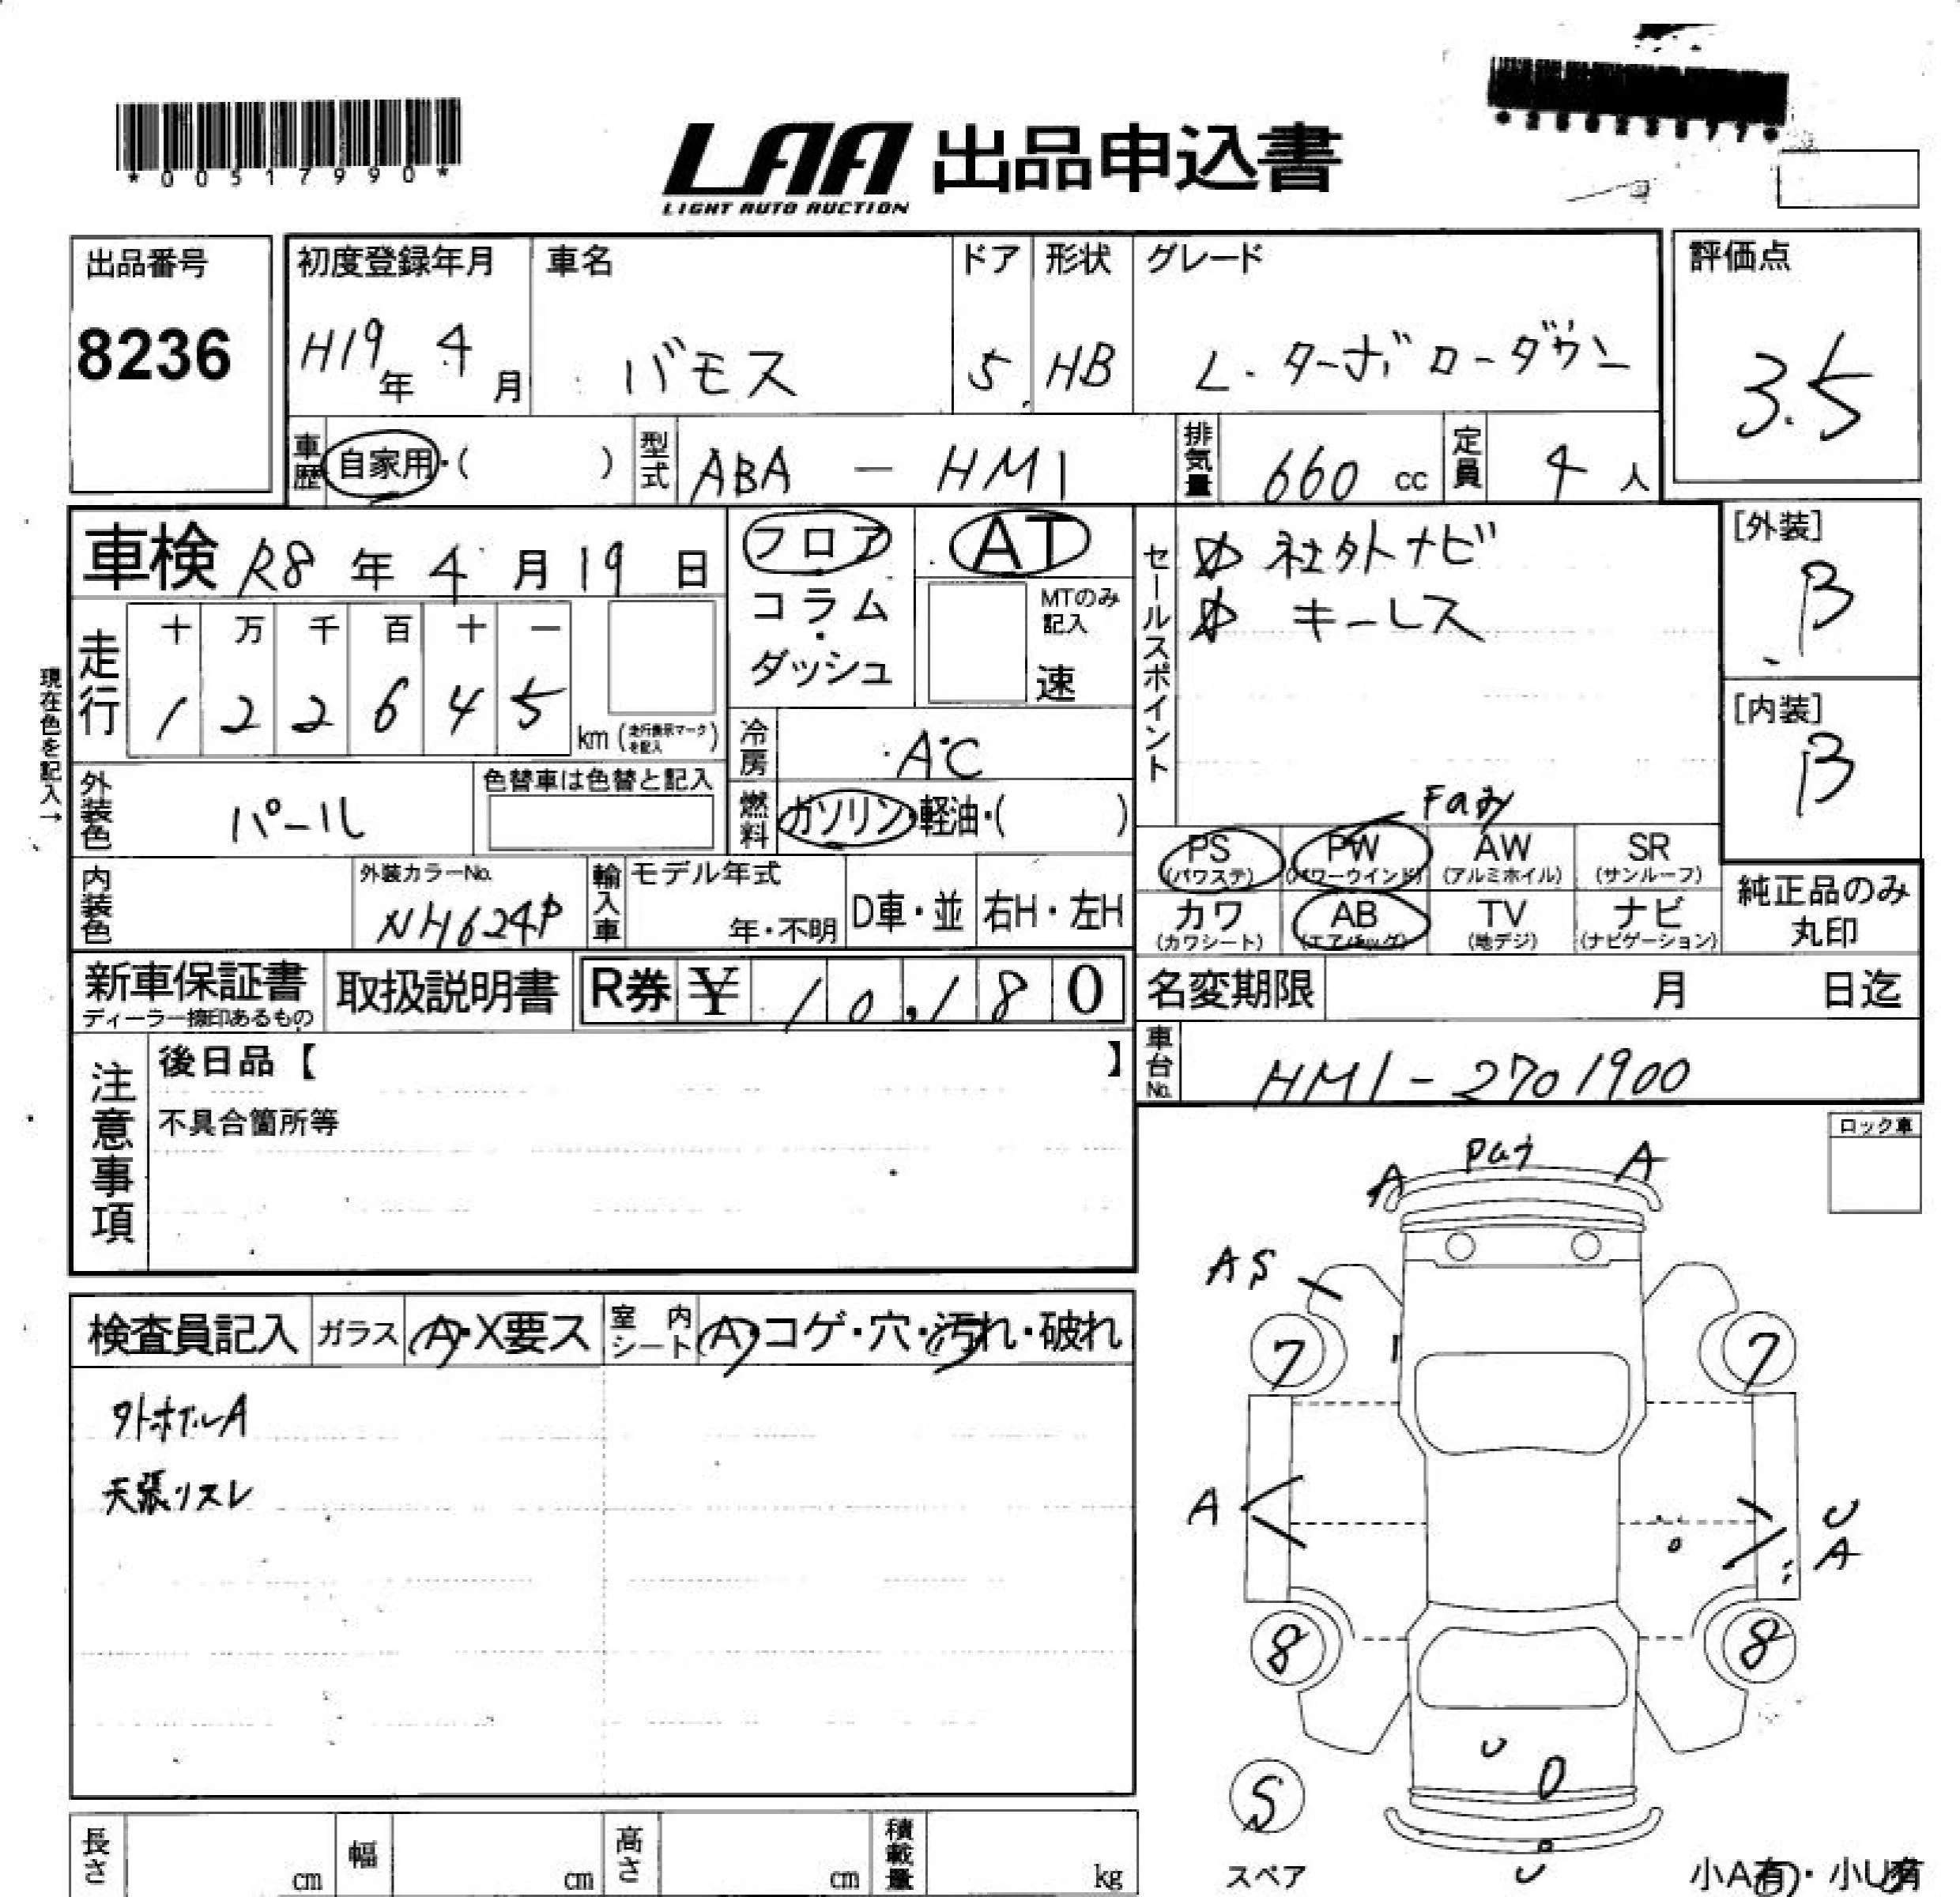 *00517990*
LAA 出品申込書
LIGHT AUTO AUCTION
出品番号
8236
初度登録年月
H19年 4月
車名
バモス
ドア
5
形状
HB
グレード
L・ターボローダウン
評価点
3.5
車歴 自家用・( )
型式 ABA - HM1
排気量 660 cc
定員 4 人
車検 R8 年 4 月 19 日
フロア
コラム
・
ダッシュ
AT
MTのみ
記入
速
セールスポイント
社外ナビ
キーレス
[外装]
B
[内装]
B
現在色を記入→
走行
十 万 千 百 十 一
1 2 2 6 4 5
km (走行表示マークを記入)
冷房 AC
外装色 パール
色替車は色替と記入
燃料 ガソリン・軽油・( )
PS (パワステ)
PW (パワーウインド)
AW (アルミホイル)
SR (サンルーフ)
内装色
外装カラーNo.
NH624P
輸入車
モデル年式
年・不明
D車・並
右H・左H
カワ (カワシート)
AB (エアバッグ)
TV (地デジ)
ナビ (ナビゲーション)
純正品のみ
丸印
新車保証書
ディーラー捺印あるもの
取扱説明書
R券 ¥ 10,180
名変期限 月 日迄
車台No. HM1-2701900
注意事項
後日品【 】
不具合箇所等
ロック車
A
A
AS
7
7
A
U
A
8
8
U
S
スペア
U
小A有・小U有
検査員記入
ガラス A・X要ス
室内シート A・コゲ・穴・汚れ・破れ
天張リスレ
長さ cm
幅 cm
高さ cm
積載量 kg